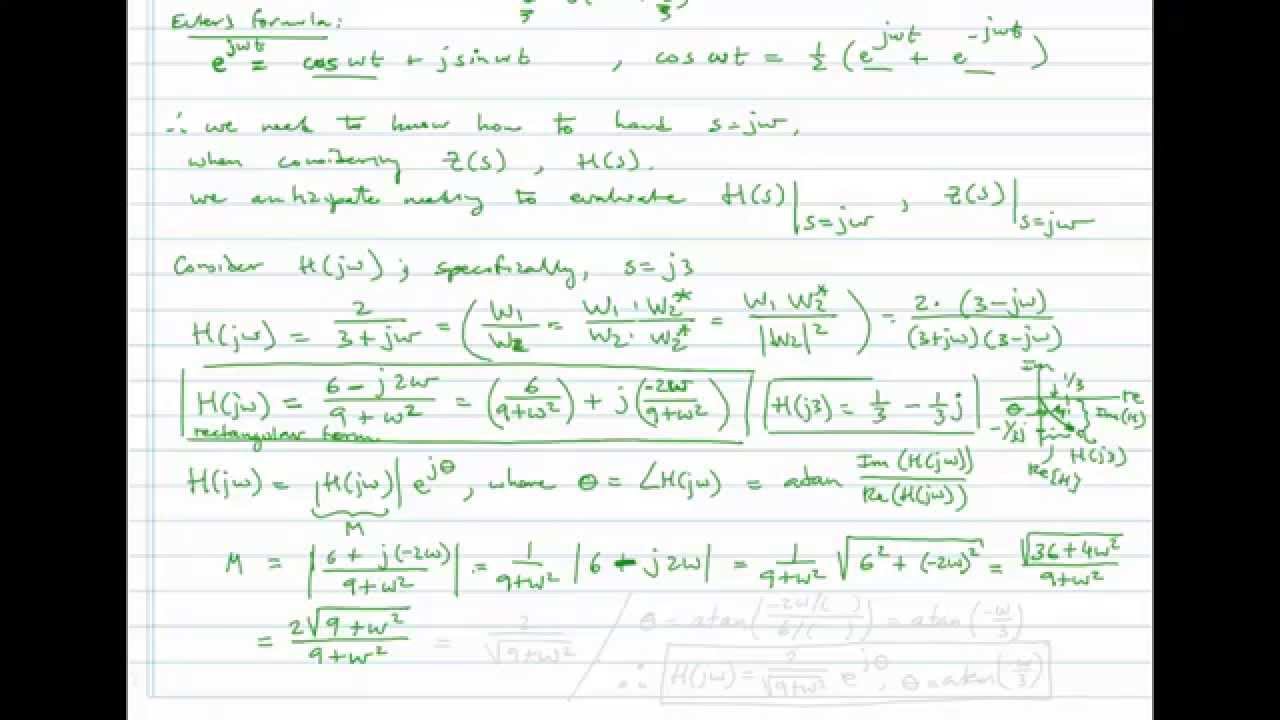 Eulers formula:
e^{jwt} = cos wt + j sin wt , cos wt = 1/2 (e^{jwt} + e^{-jwt})
∴ we need to know how to hand s=jw,
when considering Z(s) , H(s).
we anticipate needing to evaluate H(s)|_{s=jw} , Z(s)|_{s=jw}
Consider H(jw) ; specifically, s = j3
H(jw) = 2/(3+jw) = (W1/W2 = (W1 · W2*)/(W2 · W2*) = (W1 W2*)/|W2|^2) = (2·(3-jw))/((3+jw)(3-jw))
H(jw) = (6-j2w)/(9+w^2) = (6/(9+w^2)) + j(-2w/(9+w^2)) H(j3) = 1/3 - 1/3 j
rectangular form.
Im 1/3 Re θ -1/3j Im(H) H(j3) Re[H]
H(jw) = |H(jw)| e^{jθ}, where θ = ∠H(jw) = atan Im(H(jw))/Re(H(jw))
M
M = |(6+j(-2w))/(9+w^2)| = 1/(9+w^2) |6-j2w| = 1/(9+w^2) √(6^2+(-2w)^2) = √(36+4w^2)/(9+w^2)
= 2√(9+w^2)/(9+w^2) = 2/√(9+w^2) / θ = atan((-2w/( ))/(6/( ))) = atan(-w/3)
∴ H(jw) = 2/√(9+w^2) e^{jθ}, θ = atan(-w/3)